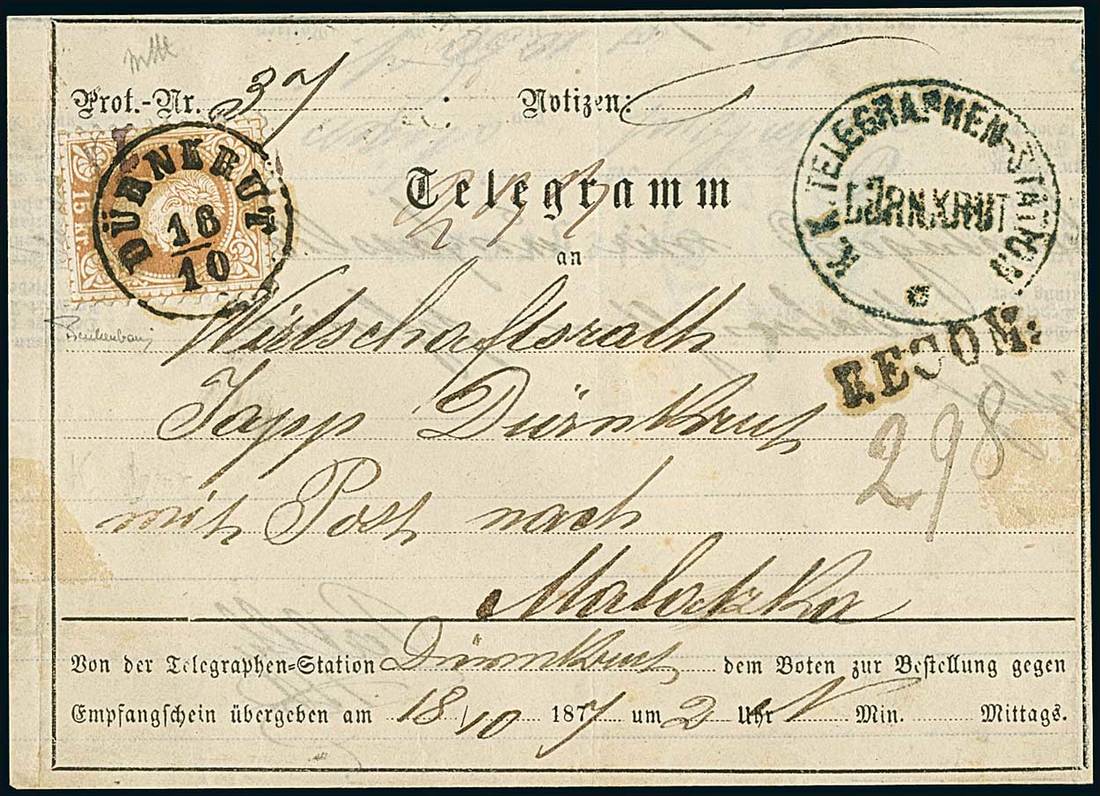 Prot.-Nr. 37 Notizen:
Telegramm
an
Wirtschaftsrath
Japp Dürnkrut
mit Post nach
Malatzka
Von der Telegraphen-Station Dürnkrut dem Boten zur Bestellung gegen
Empfangschein übergeben am 18/10 1877 um 2 Uhr N Min. Mittags.
15 kr.
DÜRNKRUT
18
10
K.K. TELEGRAPHEN-STATION
DÜRNKRUT
RECOM:
298